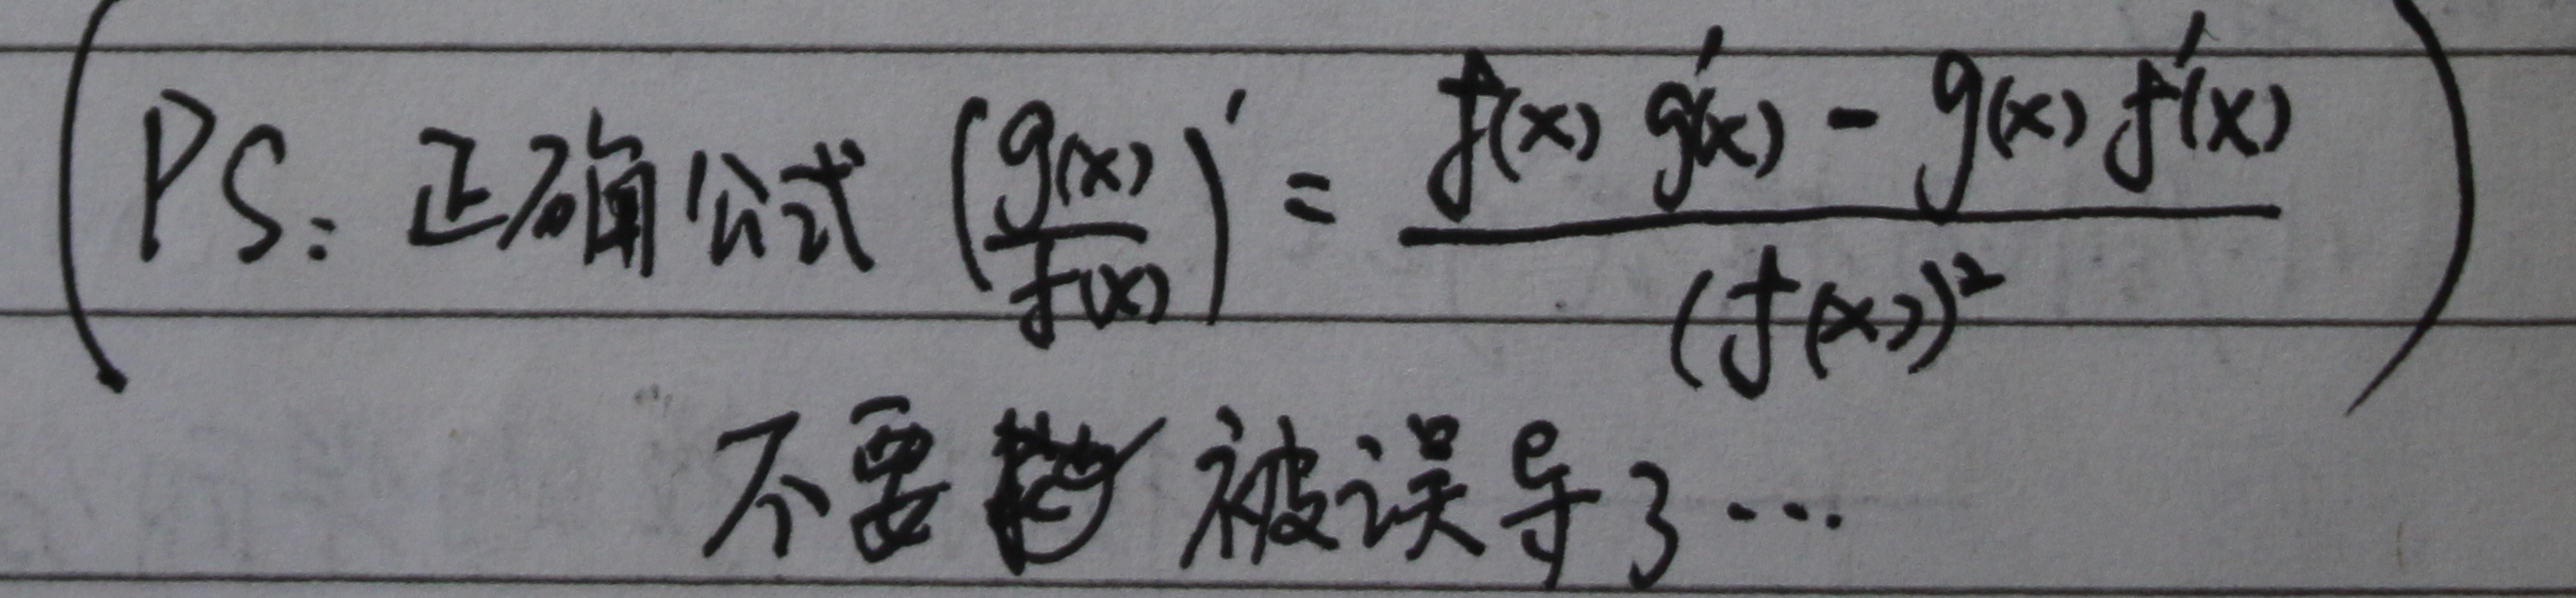 (PS: 正确公式 (g(x)/f(x))' = (f(x) g'(x) - g(x) f'(x))/(f(x))²)
不要被误导了...